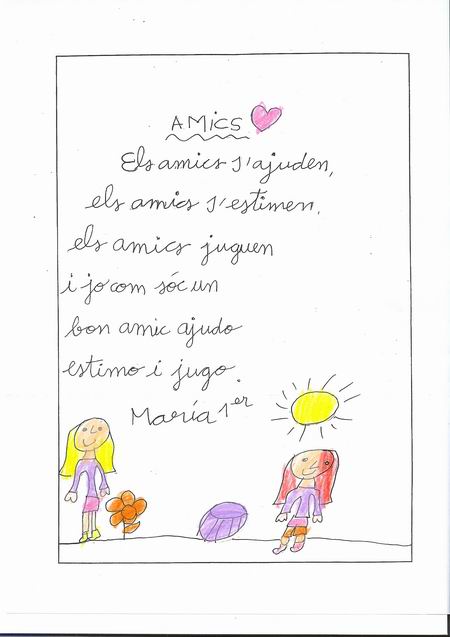 AMiCS
Els amics s'ajuden,
els amics s'estimen,
els amics juguen
i jo com sóc un
bon amic ajudo
estimo i jugo.
María 1er